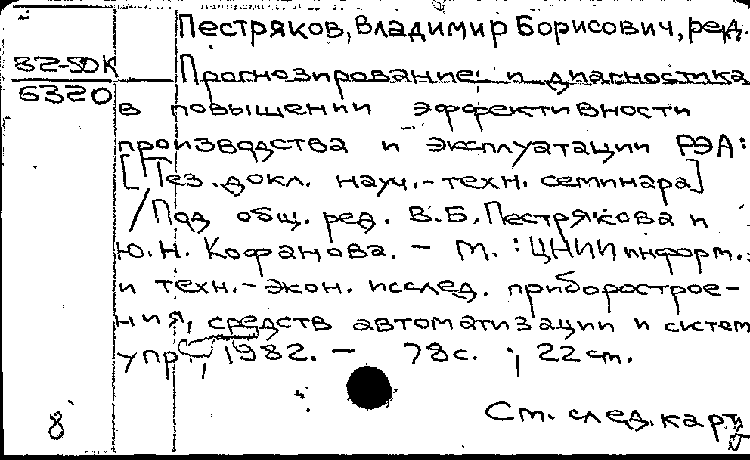 Пестряков, Владимир Борисович, ред.
82-50К
Прогнозирование и диагностика
6320
в повышении эффективности
производства и эксплуатации РЭА:
[Тез. докл. науч.-техн. семинара]
/Под общ. ред. В.Б. Пестрякова и
Ю.Н. Кофанова. - М. : ЦНИИ информ.
и техн.-экон. исслед. приборострое-
ния, средств автоматизации и систем
упр., 1982. - 78 с. ; 22 см.
8
См. след. карт